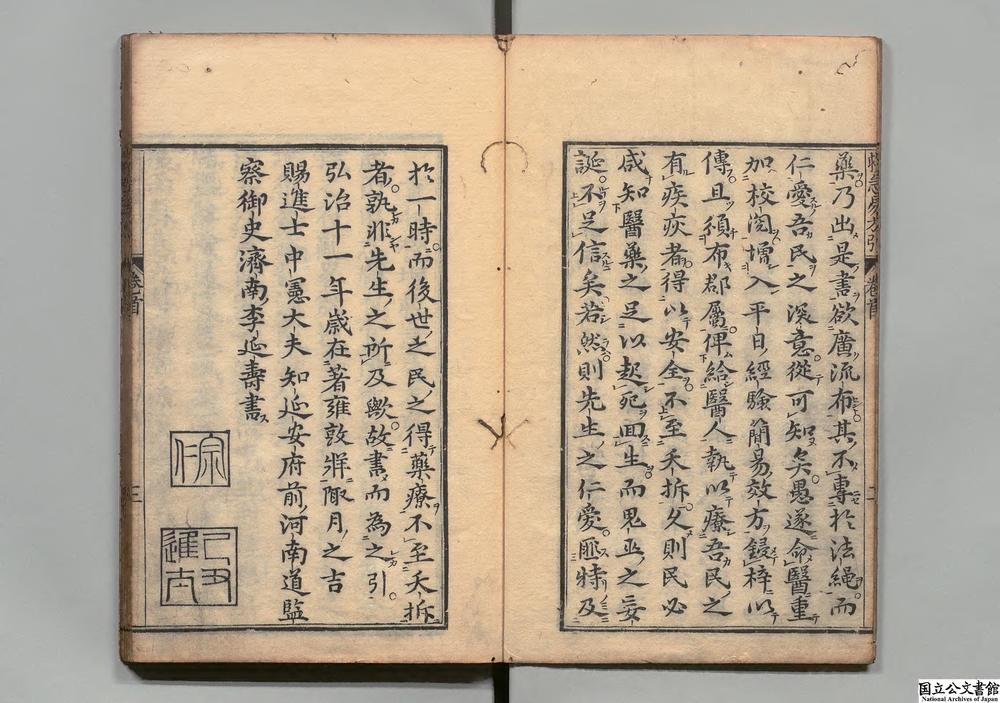 藥乃出是書欲廣流布其不專於法繩而
仁愛吾民之深意從可知矣愚遂命醫重
加校閱增入平日經驗簡易效方鋟梓以
傳且頒布郡屬俾給醫人執以療吾民之
有疾疢者得以安全不至夭折久則民必
咸知醫藥之足以起死回生而鬼巫之妄
誕不足信矣若然則先生之仁愛匪特及
於一時而後世之民之得藥療不至夭折
者孰非先生之所及歟故書而為之引
弘治十一年歲在著雍敦牂陬月之吉
賜進士中憲大夫知延安府前河南道監
察御史濟南李延壽書
宗仁
己丑進士
救急易方引
卷首
二
卷首
三
国立公文書館
National Archives of Japan